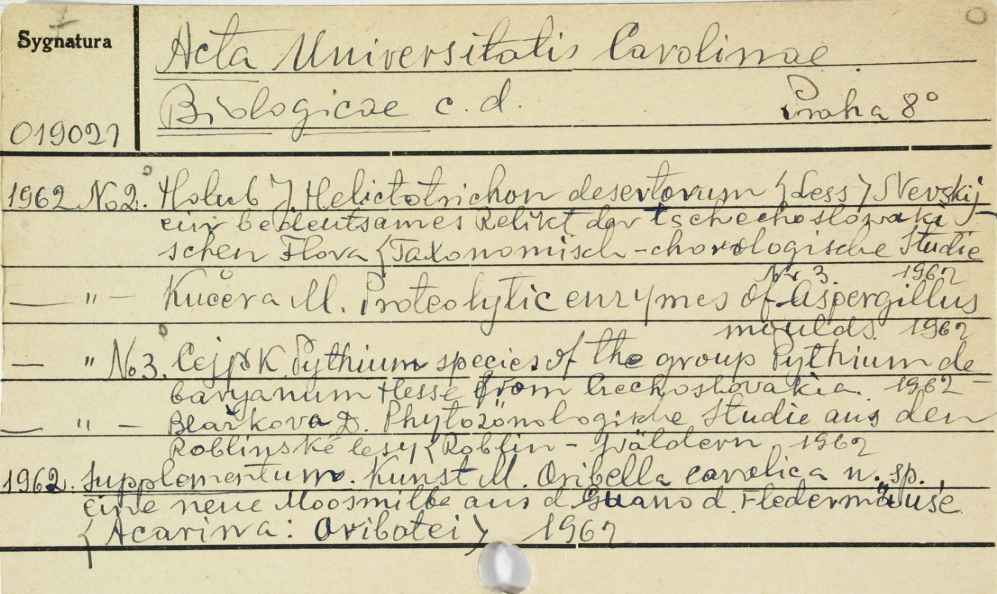 Sygnatura
Acta Universitatis Carolinae
Biologicae c. d. Praha 8°
019021
1962 No 2. Holub J. Helictotrichon desertorum (Less) Nevskij
ein bedeutsames Relikt der tschechoslowaki-
schen Flora (Taxonomisch-chorologische Studie
Nr 3. 1962
— " — Kučera M. Proteolytic enzymes of Aspergillus
moulds. 1962
— " No 3. Cejp K Pythium species of the group Pythium de
baryanum Hesse from Czechoslovakia 1962 —
— " — Blažkova D. Phytozönologische Studie aus den
Roblinské lesy (Roblin - Wäldern, 1962
1962. Supplementum. Kunst M. Oribella cavatica n. sp.
eine neue Moosmilbe aus d. Guano d. Fledermäuse
(Acarina: Oribatei) 1962